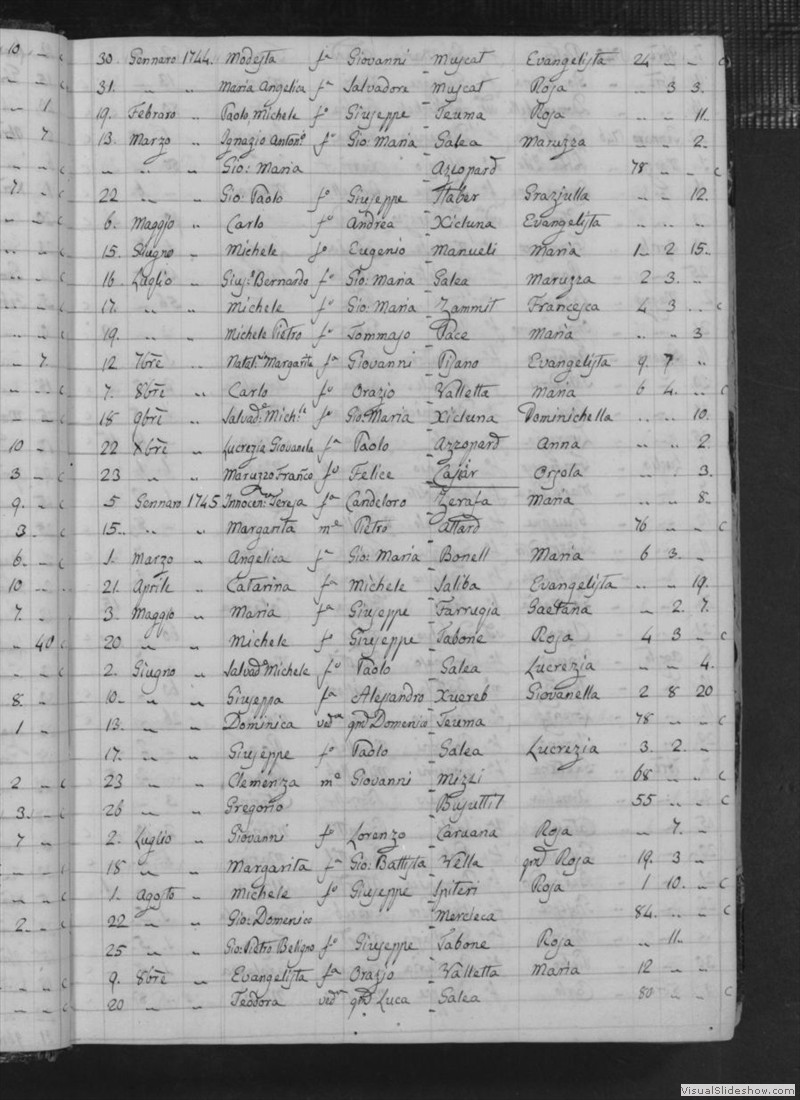 30. Gennaro 1744. Modesta fa Giovanni Muscat Evangelista 24 .. .. c
31. .. .. Maria Angelica fa Salvadore Muscat Rosa .. 3 3.
19. Febraro .. Paolo, Michele fo Giuseppe Teuma Rosa .. .. 11.
13. Marzo .. Ignazio Antono fo Gio: Maria Galea Maruzza .. .. 2.
.. .. .. Gio: Maria Azzopard 78 .. .. c
22 .. .. Gio: Paolo fo Giuseppe Staber Graziulla .. .. 12.
6. Maggio .. Carlo fo Andrea Xicluna Evangelista .. .. ..
15. Giugno .. Michele fo Eugenio Manueli Maria 1 .. 2 15..
16. Luglio .. Gius: Bernardo fo Gio: Maria Galea Maruzza 2 3. ..
17. .. .. Michele fo Gio: Maria Zammit Francesca 4 3 .. c
19. .. .. Michele Pietro fo Tommaso Pace Maria .. .. 3
12 7bre .. Natal: Margarita fa Giovanni Pisano Evangelista 9. 7 ..
7. 8bre .. Carlo fo Orazio Valletta Maria 6 4. .. c
18 9bre .. Salvad: Miche fo Gio: Maria Xicluna Dominichella .. .. 10.
22 Xbre .. Lucrezia Giovanela fa Paolo Azzopard Anna .. .. 2.
23 .. .. Maruzzo Franco fo Felice Casar Orsola .. .. 3.
5 Gennaro 1745 Innocen: Teresa fa Candeloro Zerafa Maria .. .. 8..
15.. .. .. Margarita me Pietro Attard 76 .. .. c
1. Marzo .. Angelica fa Gio: Maria Bonell Maria 6 3. ..
21. Aprile .. Catarina fa Michele Saliba Evangelista .. .. 19.
3. Maggio .. Maria fa Giuseppe Farrugia Gaetana .. 2. 7.
20 .. .. Michele fo Giuseppe Tabone Rosa 4 3 .. c
2. Giugno .. Salvado Michele fo Paolo Galea Lucrezia .. .. 4.
10.. .. .. Giuseppa fa Alessandro Xuereb Giovanella 2 8 20
13. .. .. Dominica veda qnd Domenico Teuma 78 .. .. c
17. .. .. Giuseppe fo Paolo Galea Lucrezia 3. 2. ..
23 .. .. Clemenza me Giovanni Mizzi 68 .. .. c
26 .. .. Gregorio Busuttil 55 .. .. c
2. Luglio .. Giovanni fo Lorenzo Caruana Rosa .. 7. ..
18 .. .. Margarita fa Gio: Battista Vella qnd Rosa 19. 3 ..
1. Agosto .. Michele fo Giuseppe Spiteri Rosa 1 10. .. c
22 .. .. Gio: Domenico Mercieca 84. .. .. c
25 .. .. Gio: Pietro Beligno fo Giuseppe Tabone Rosa .. 11.. ..
9. 8bre .. Evangelista fa Orazio Valletta Maria 12 .. ..
20 .. .. Teodora veda qnd Luca Galea 80 .. .. c
VisualSlideshow.com